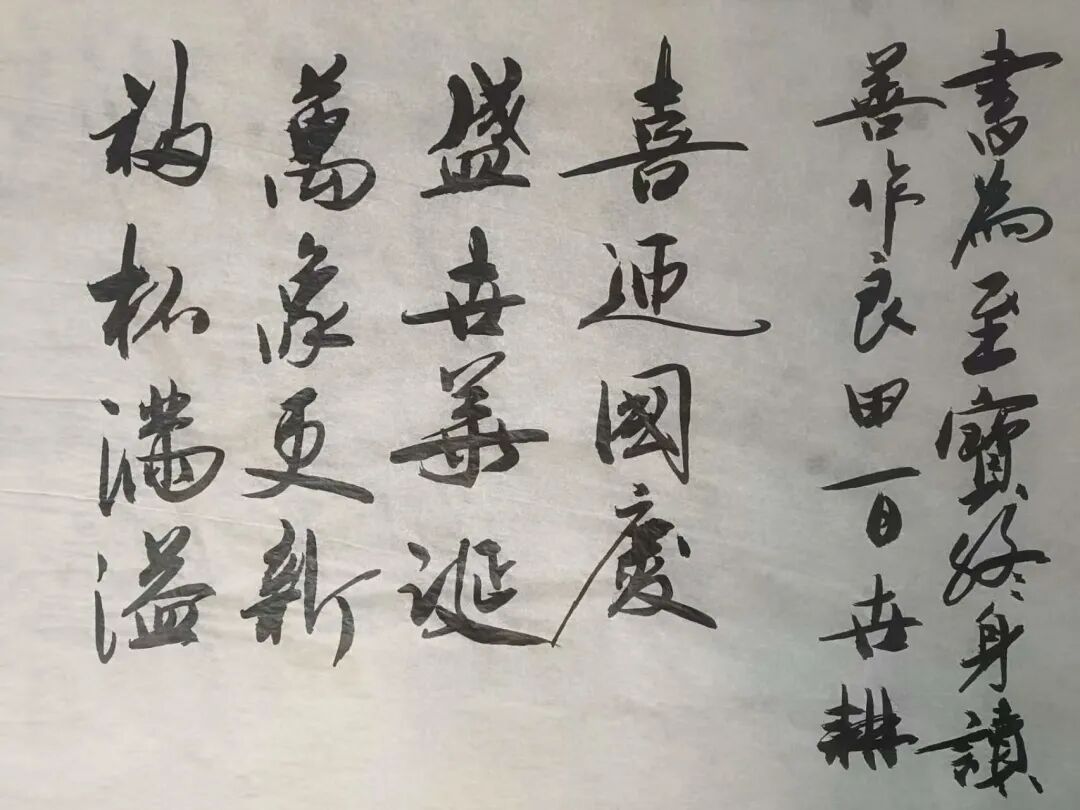 書為至寶終身讀
善作良田百世耕
喜迎國慶
盛世華誕
萬象更新
福杯滿溢